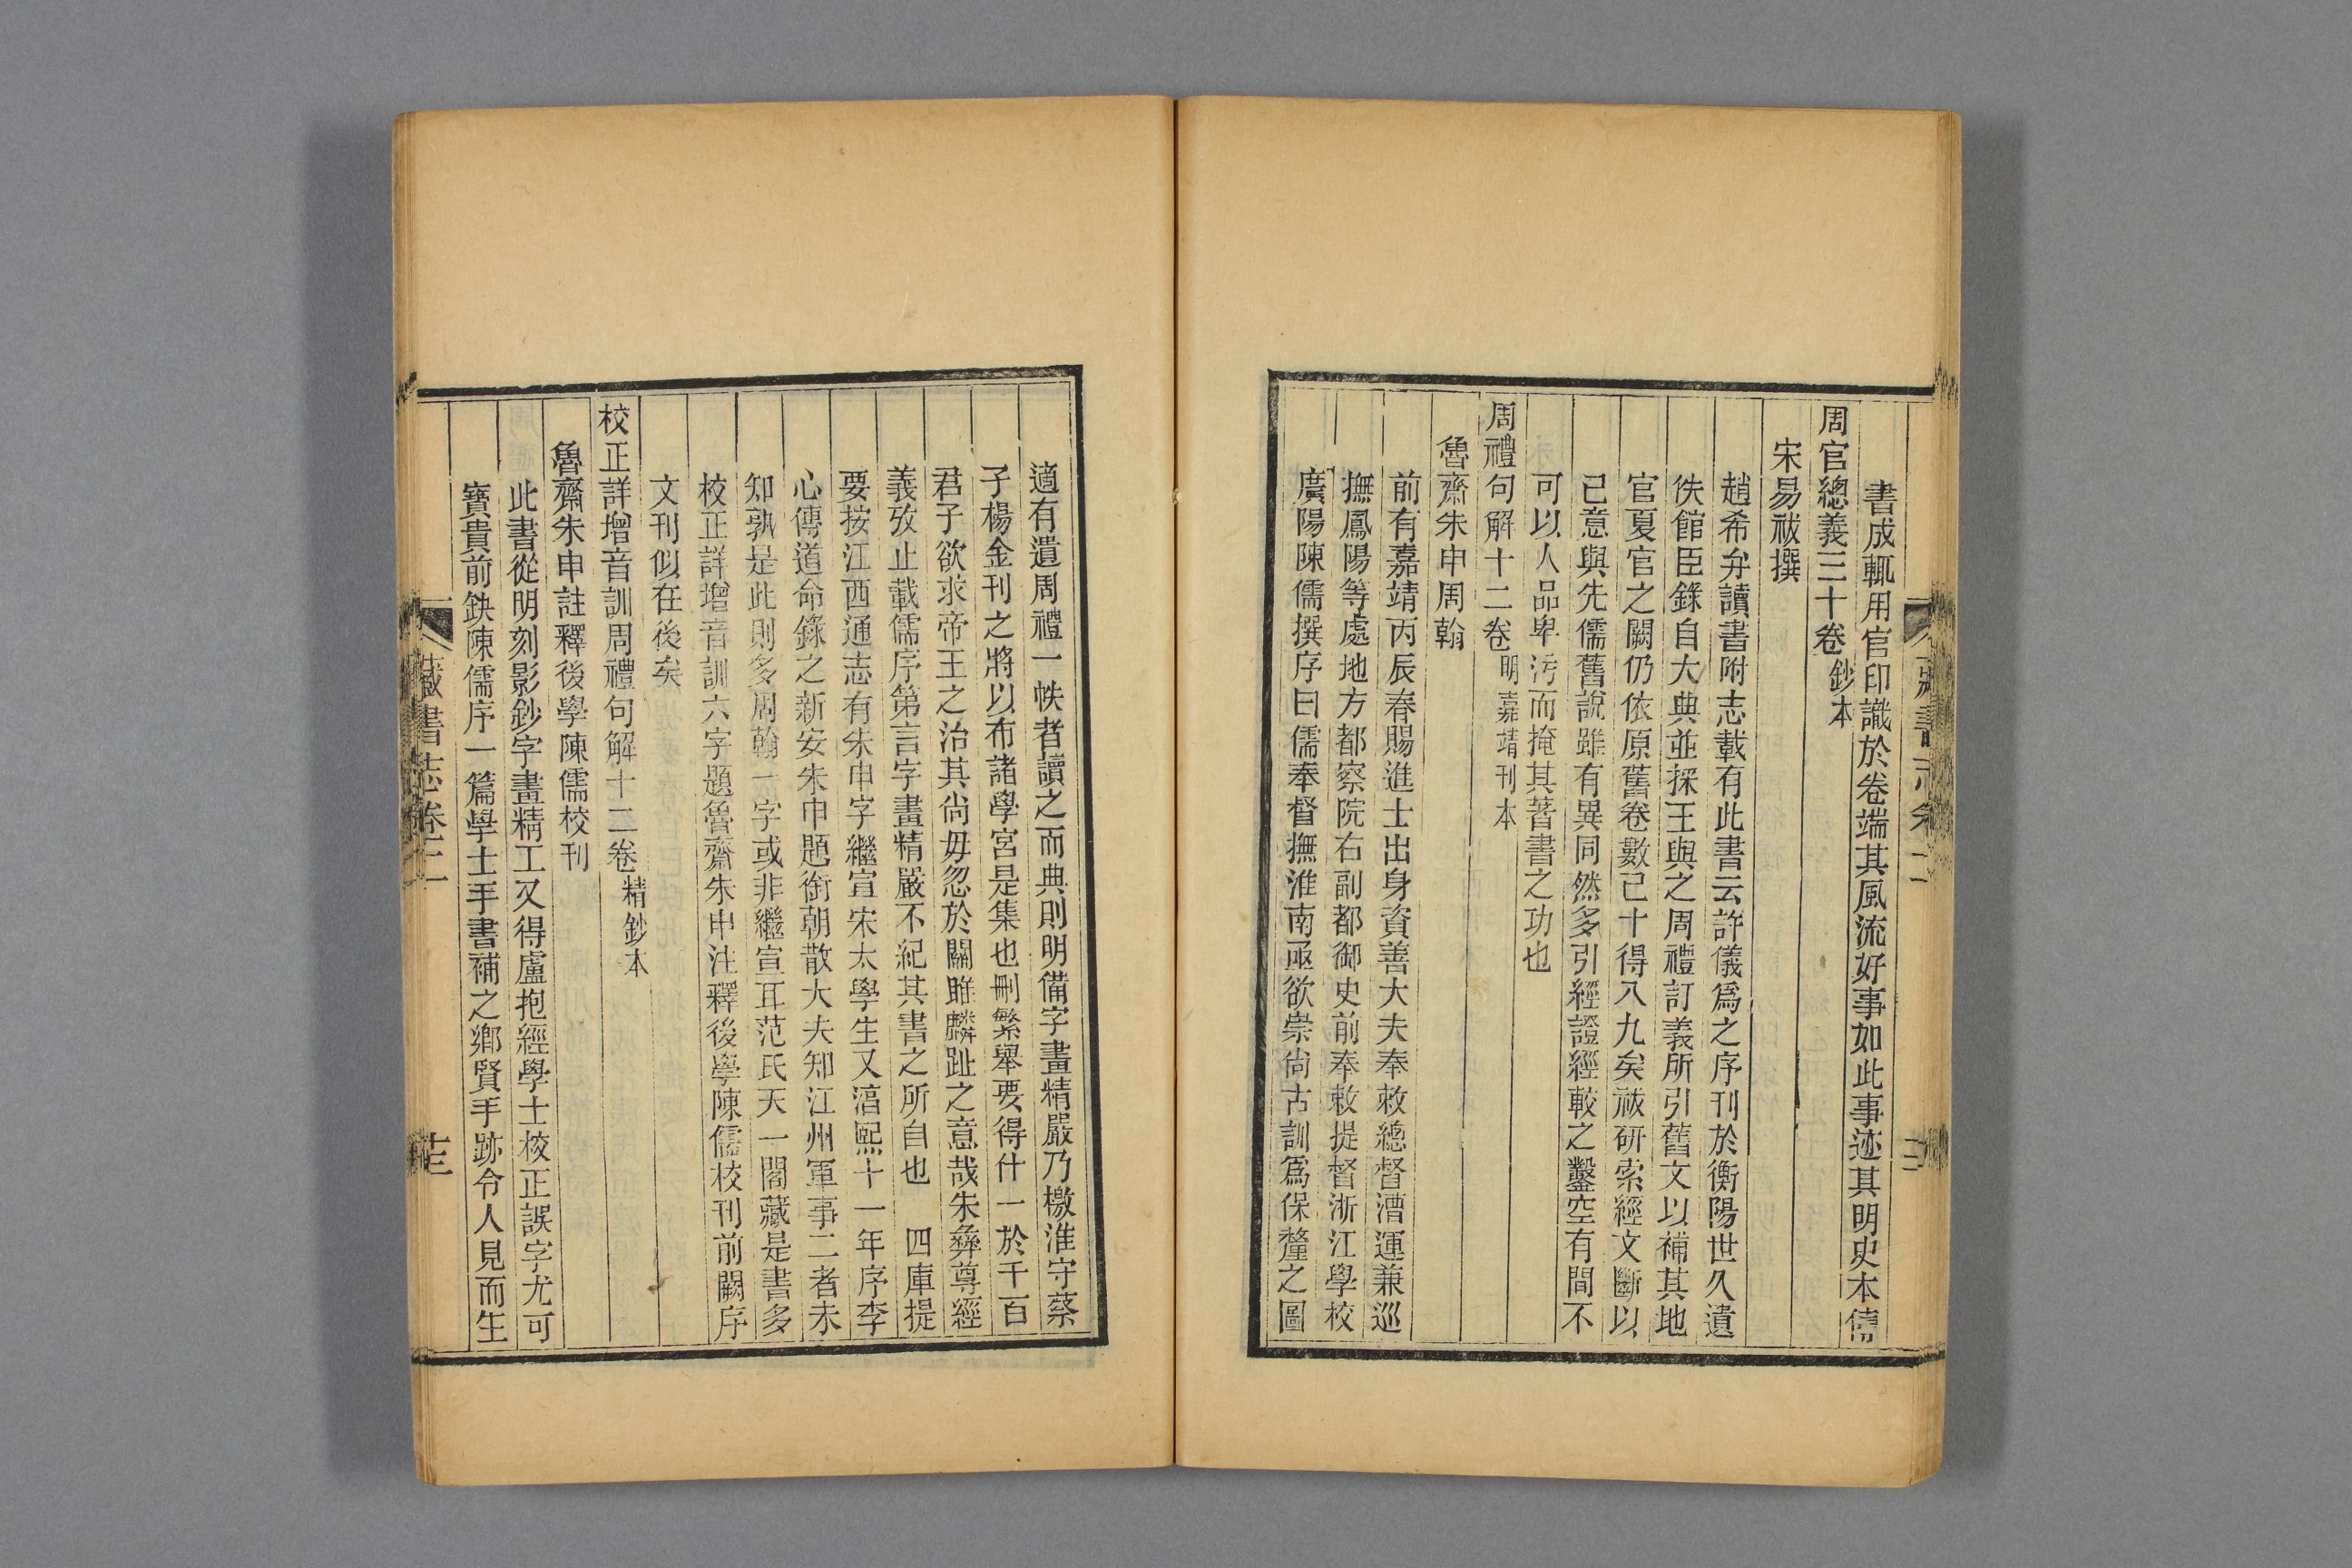 書成輒用官印識於卷端其風流好事如此事迹其明史本傳
周官總義三十卷鈔本
宋易祓撰
趙希弁讀書附志載有此書云許儀爲之序刊於衡陽世久遺
佚館臣錄自大典並採王與之周禮訂義所引舊文以補其地
官夏官之闕仍依原舊卷數已十得八九矣祓研索經文斷以
己意與先儒舊說雖有異同然多引經證經較之鑿空有間不
可以人品卑汚而掩其著書之功也
周禮句解十二卷明嘉靖刊本
魯齋朱申周翰
前有嘉靖丙辰春賜進士出身資善大夫奉敕總督漕運兼巡
撫鳳陽等處地方都察院右副都御史前奉敕提督浙江學校
廣陽陳儒撰序曰儒奉督撫淮南亟欲崇尚古訓爲保釐之圖
適有遺周禮一帙者讀之而典則明備字畫精嚴乃檄淮守蔡
子楊金刊之將以布諸學宮是集也刪繁舉要得什一於千百
君子欲求帝王之治其尚毋忽於關雎麟趾之意哉朱彝尊經
義攷止載儒序第言字畫精嚴不紀其書之所自也 四庫提
要按江西通志有朱申字繼宣宋太學生又淳熙十一年序李
心傳道命錄之新安朱申題銜朝散大夫知江州軍事二者未
知孰是此則多周翰一字或非繼宣耳范氏天一閣藏是書多
校正詳增音訓六字題魯齋朱申注釋後學陳儒校刊前闕序
文刊似在後矣
校正詳增音訓周禮句解十二卷精鈔本
魯齋朱申註釋後學陳儒校刊
此書從明刻影鈔字畫精工又得盧抱經學士校正誤字尤可
寶貴前鈌陳儒序一篇學士手書補之鄉賢手跡令人見而生
藏書志卷二